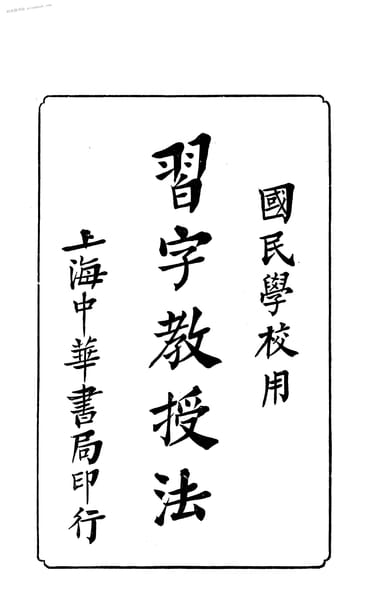 國民學校用
習字教授法
上海中華書局印行